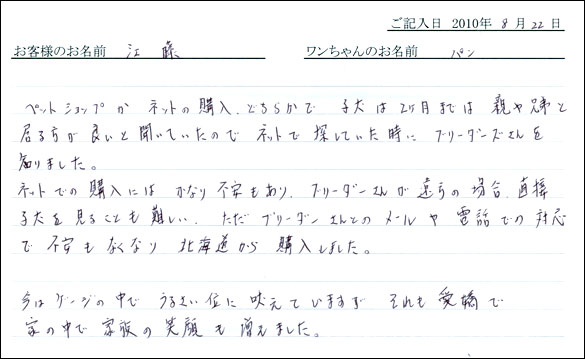 ご記入日 2010年 8月 22日
お客様のお名前 江藤 ワンちゃんのお名前 パン
ペットショップか ネットの購入、どちらかで 子犬は2ヶ月までは 親や兄弟と
居る方が良いと聞いていたので ネットで探していた時に ブリーダーズさんを
知りました。
ネットでの購入には かなり不安もあり、ブリーダーさんが 遠方の場合、直接
子犬を見ることも難しい、ただ ブリーダーさんとのメールや 電話での対応
で不安もなくなり 北海道から 購入しました。
今はケージの中で うるさい位に吠えていますが それも愛嬌で
家の中で家族の笑顔も増えました。